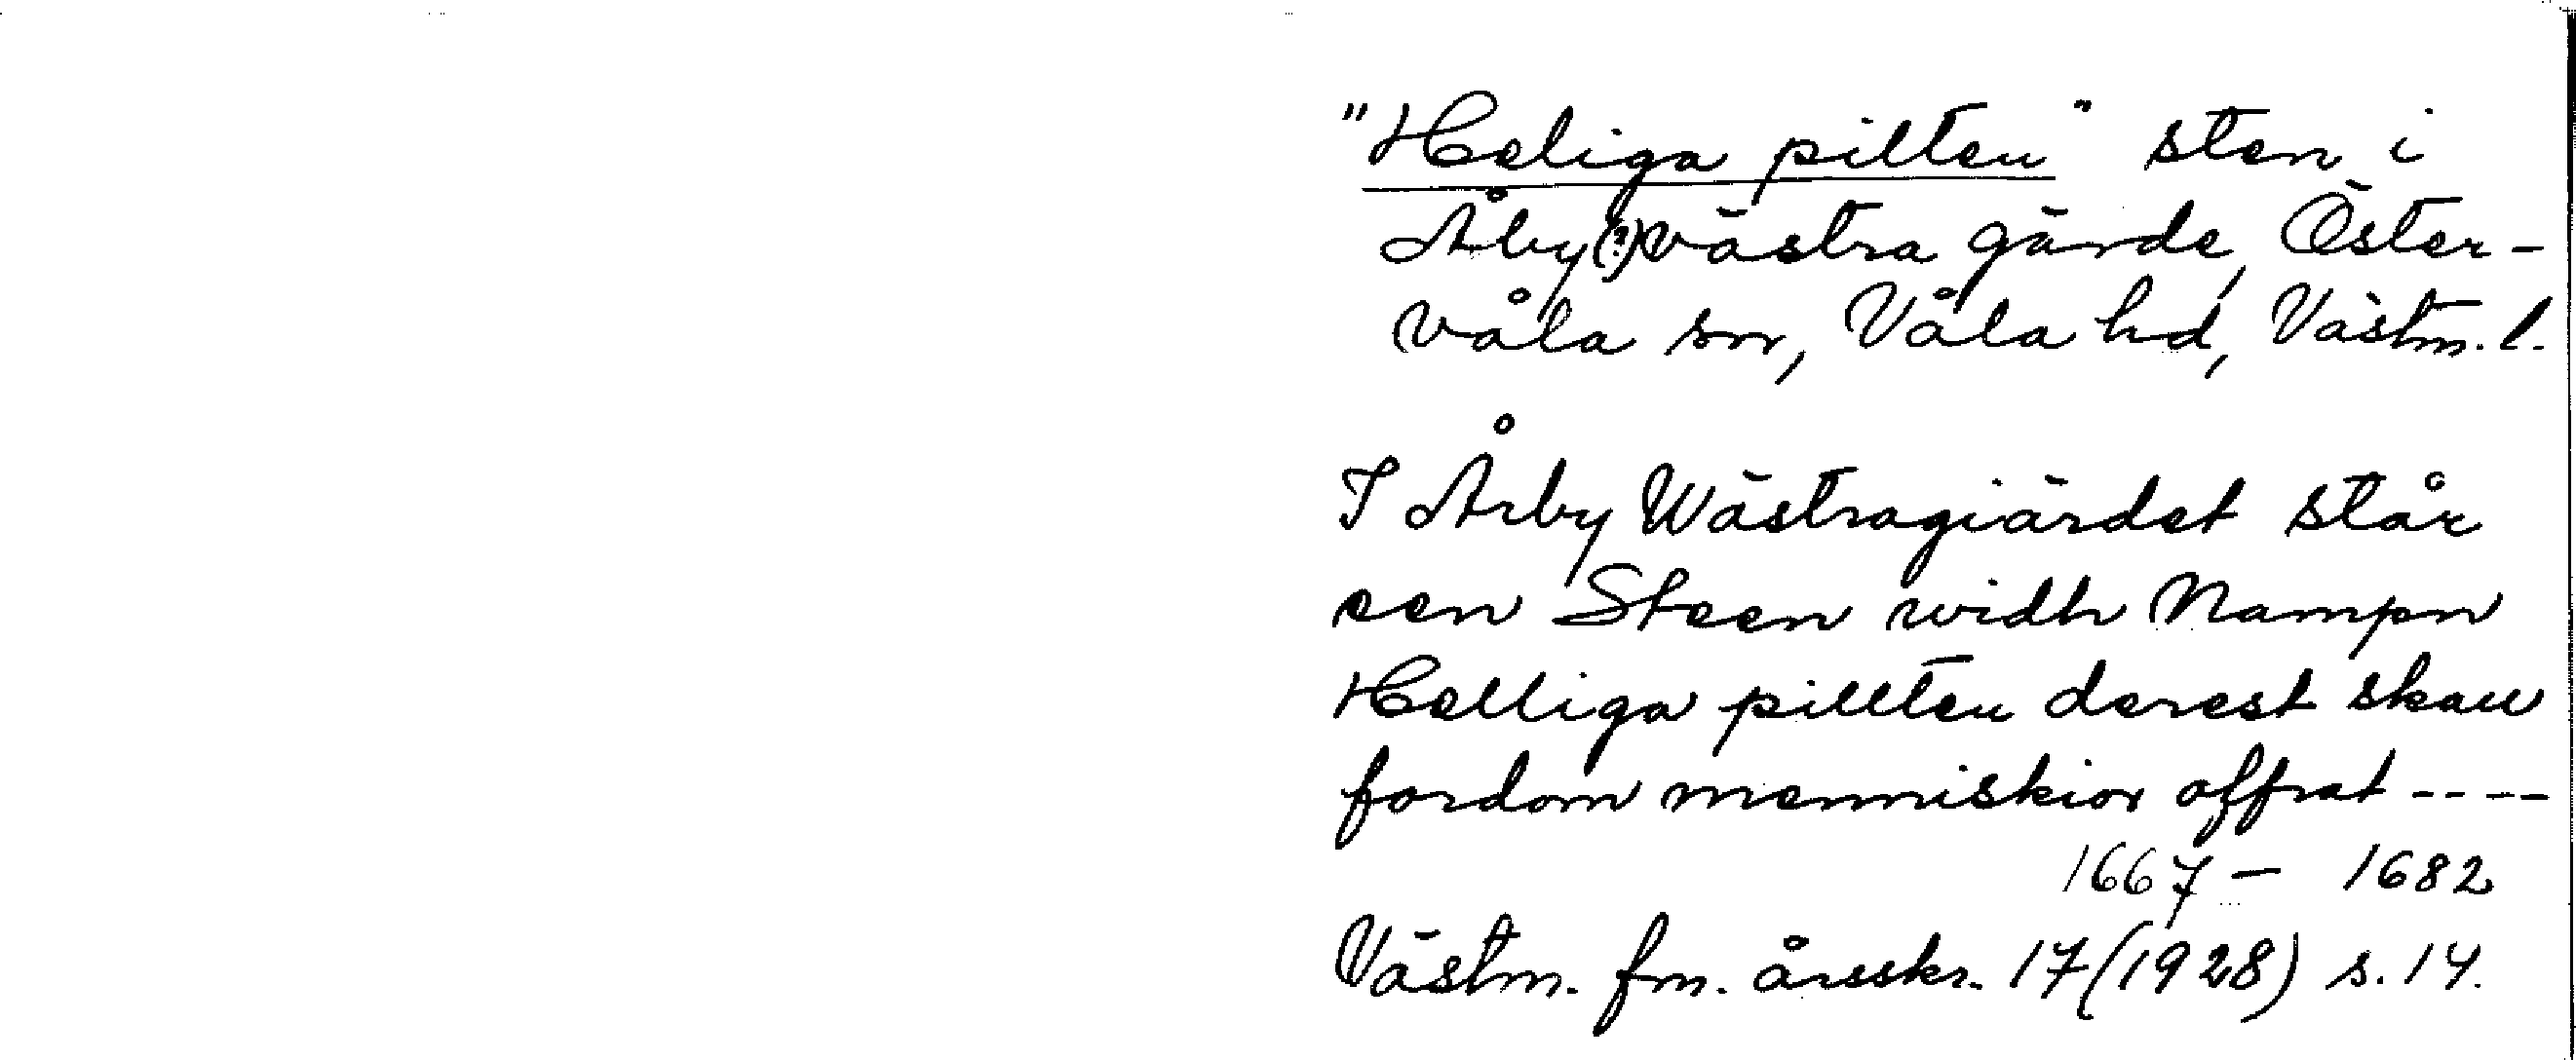 "Heliga pilten" sten i
Åby(?) västra gärde, Öster-
våla sn, Våla hd, Västm. l.
I Årby Wästragiärdet står
een Steen widh Nampn
Helliga pillten derest skau
fordom menniskior offrat ----
1667 - 1682
Västm. fm. årsskr. 17 (1928) s. 14.